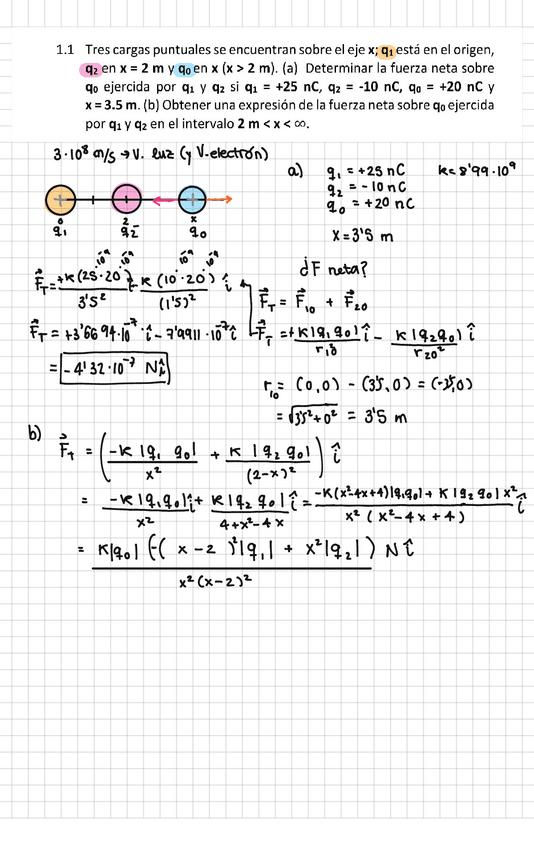 1.1 Tres cargas puntuales se encuentran sobre el eje x; q₁ está en el origen,
q₂ en x = 2 m y q₀ en x (x > 2 m). (a) Determinar la fuerza neta sobre
q₀ ejercida por q₁ y q₂ si q₁ = +25 nC, q₂ = -10 nC, q₀ = +20 nC y
x = 3.5 m. (b) Obtener una expresión de la fuerza neta sobre q₀ ejercida
por q₁ y q₂ en el intervalo 2 m < x < ∞.
3·10⁸ m/s → V. luz (y V.electrón)
a) q₁ = +25 nC k = 8'99·10⁹
q₂ = -10 nC
q₀ = +20 nC
x = 3'5 m
+ + +
0 2 x
q₁ q₂ q₀
¿F neta?
10⁻⁹ 10⁻⁹ 10⁻⁹ 10⁻⁹
F⃗_T = +K(25·20)/3'5² - K(10·20)/(1'5)² î
F⃗_T = F⃗₁₀ + F⃗₂₀
F⃗_T = +3'6694·10⁻⁷ î - 7'9911·10⁻⁷ î
F⃗_T = +K|q₁q₀|/r₁₀² î - K|q₂q₀|/r₂₀² î
= -4'32·10⁻⁷ N î
r₁₀ = (0,0) - (3'5,0) = (-3'5,0)
= √3'5²+0² = 3'5 m
b) F⃗_T = (-K|q₁ q₀|/x² + K|q₂ q₀|/(2-x)²) î
= -K|q₁q₀|/x² î + K|q₂ q₀|/4+x²-4x î = -K(x²-4x+4)|q₁q₀| + K|q₂ q₀|x²/x²(x²-4x+4) î
= K|q₀|(-(x-2)²|q₁| + x²|q₂|)/x²(x-2)² N î